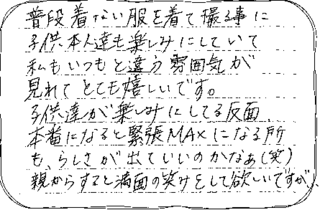 普段着ない服を着て撮る事に
子供本人達も楽しみにしていて
私もいつもと違う雰囲気が
見れてとても嬉しいです。
子供達が楽しみにしてる反面、
本番になると緊張MAXになる所
も、らしさが出ていいのかなぁ(笑)
親からすると満面の笑みをして欲しいですが、